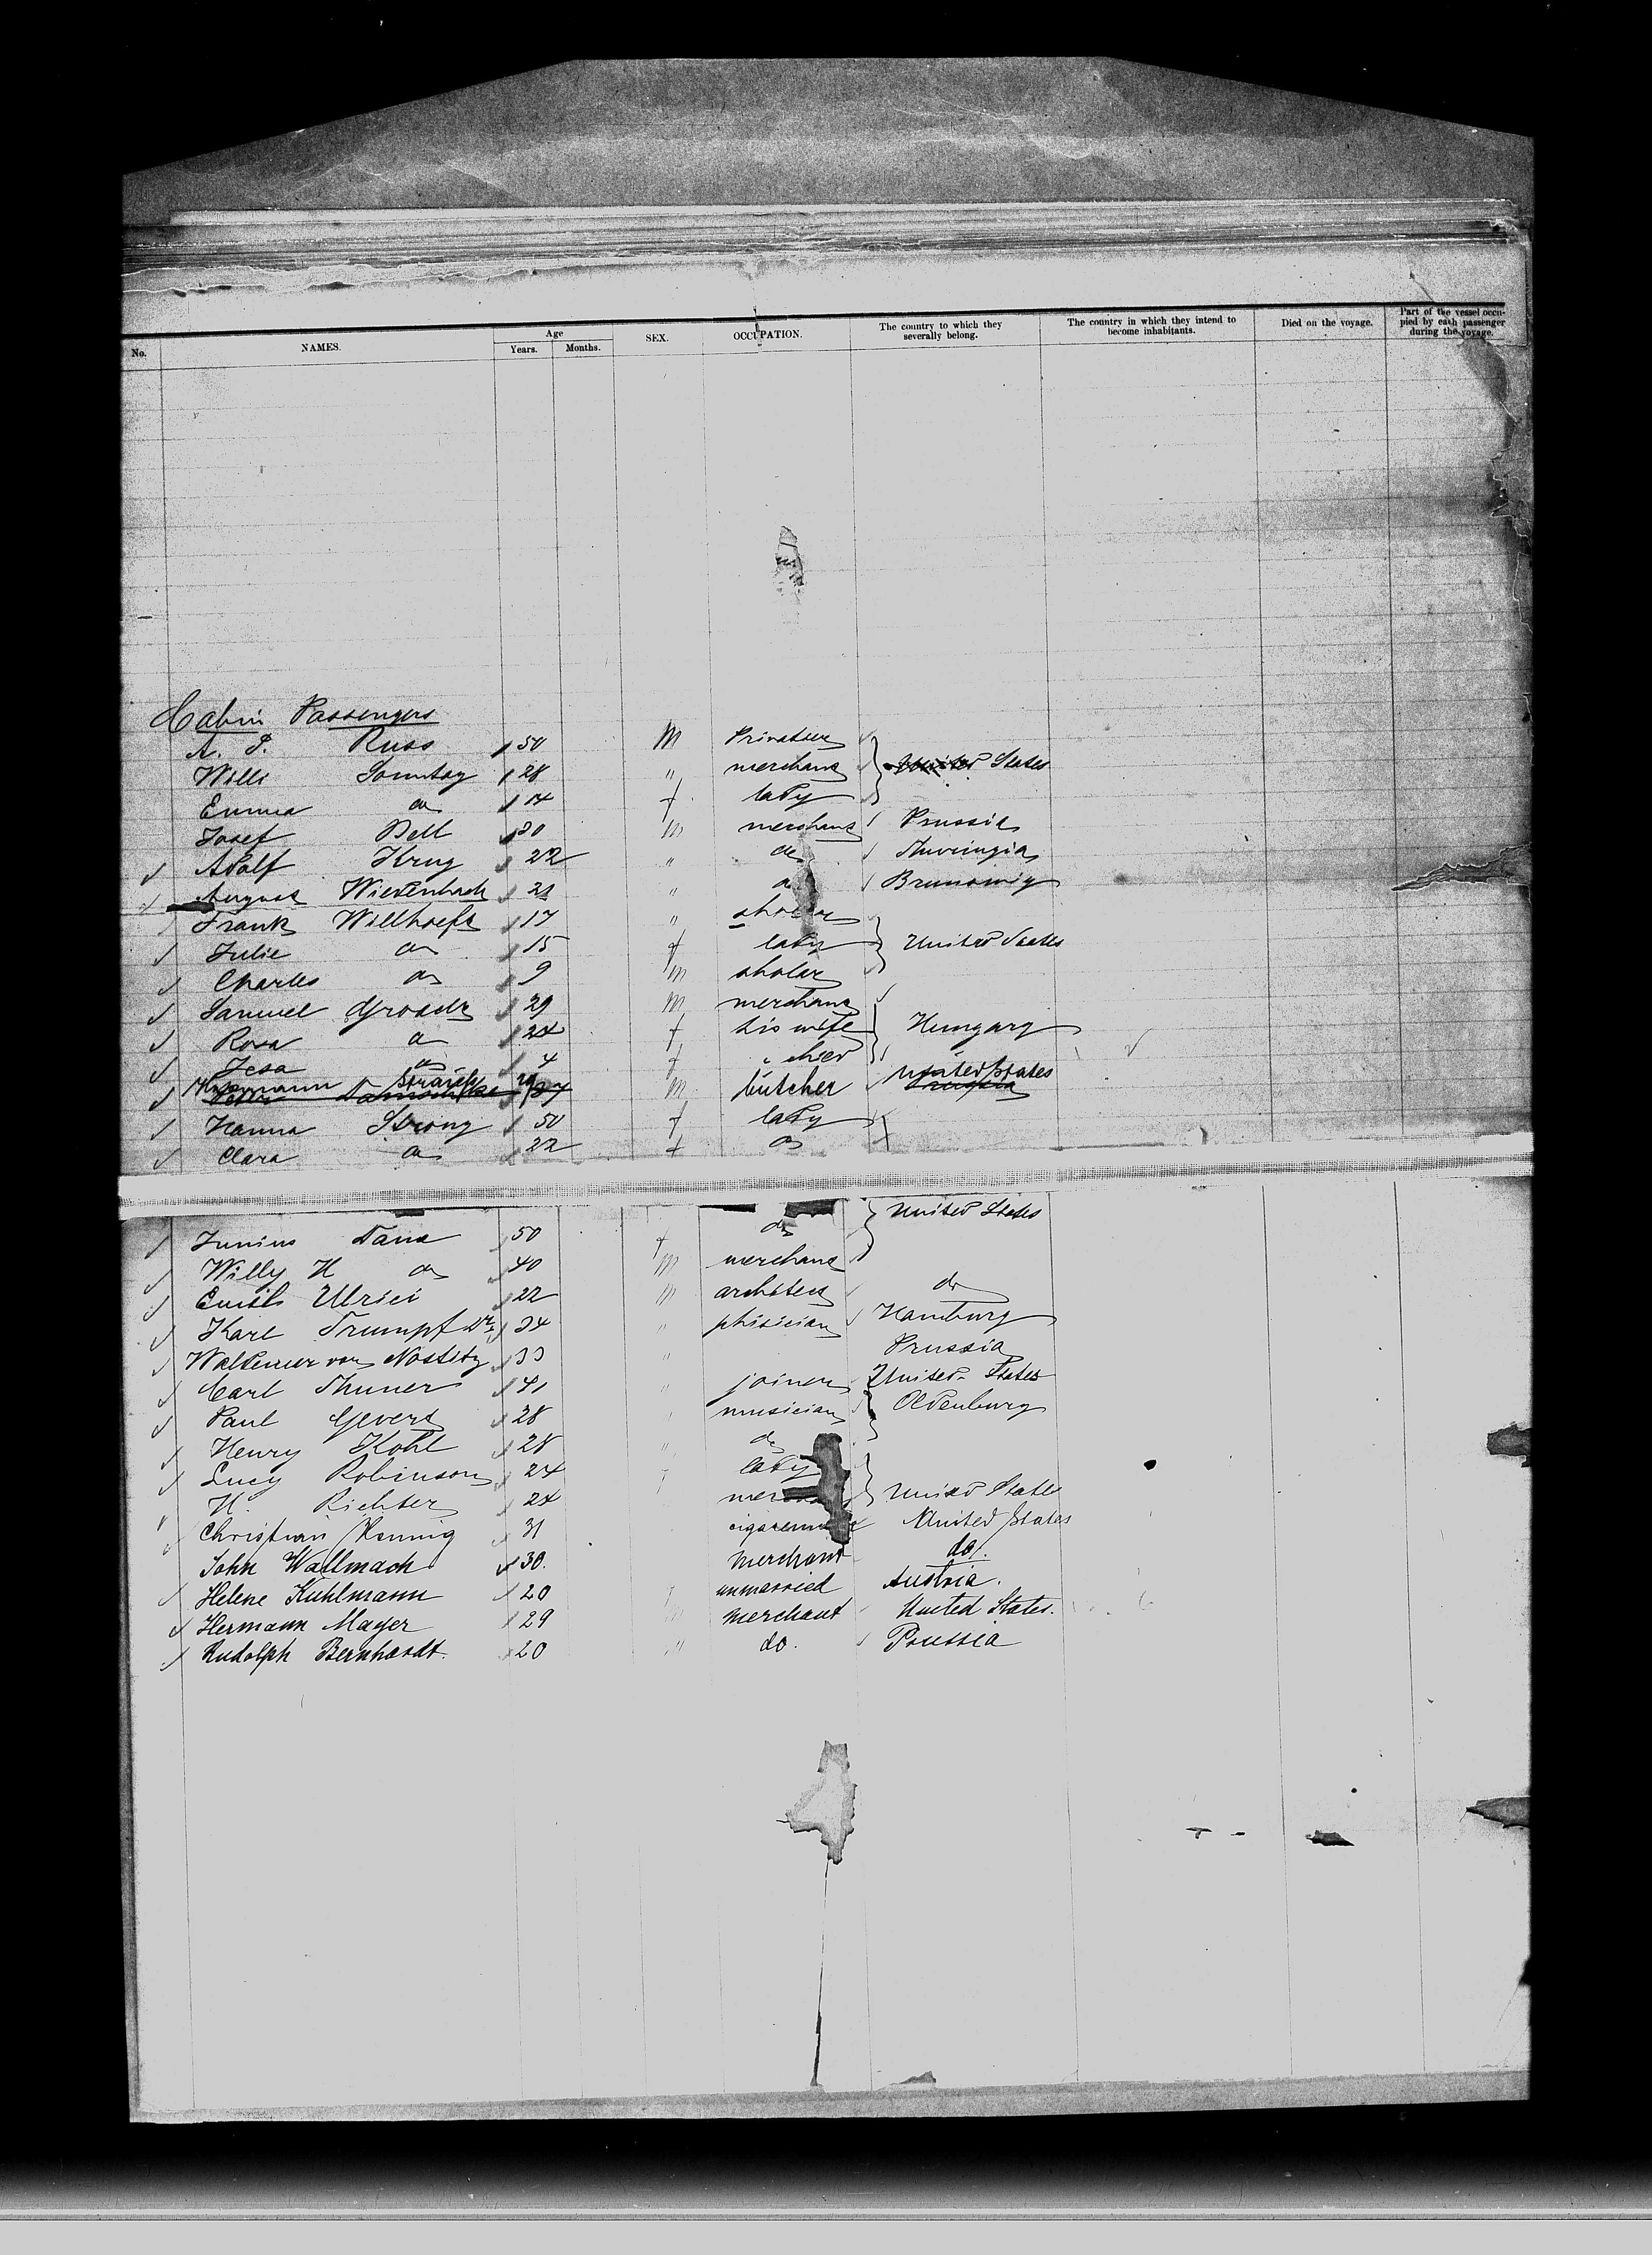 No. NAMES. Age Years. Months. SEX. OCCUPATION. The country to which they severally belong. The country in which they intend to become inhabitants. Died on the voyage. Part of the vessel occupied by each passenger during the voyage.
Cabin Passengers
A. P. Russ 50 M
Willi Sonntag 28 " merchant United States
Emma do 14 f. lady
Josef Dell 30 m merchant Prussia
Adolf Krug 22 " do Thuringia
August Wiedenbach 21 " Brunswig
Frank Willhoeft 17 " sholar
Julie do 15 f lady United States
Charles do 9 m sholar
Samuel 29 m merchant
Rosa do 24 f his wife Hungary
do 4 f " child
Hermann 27 M butcher United States
Hanna Strong 50 f lady
Clara do 22 f do
United States
Junius Dana 50 f do
Willy H do 40 m merchant
Emil Ulrici 22 m architect do
Karl Trumpf Dr. 34 " phisician Hamburg
Waldemar von Nostitz 33 " Prussia
Carl Thuner 41 " joiner United States
Paul Gevert 28 " musician Oldenburg
Henry Kohl 28 " do
Lucy Robinson 24 f lady
H. Richter 24 United States
Christian Hennig 31 United States
John Wallmach 30. merchant do.
Helene Kuhlmann 20 f unmarried Austria.
Hermann Mayer 29 m merchant United States.
Rudolph Bernhardt. 20 " do. Prussia